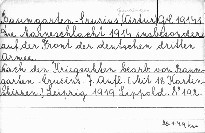 Baumgarten-Crusius (Artur) Gl. 1914:
Die Marneschlacht 1914 insbesondere
auf der Front der deutschen dritten
Armee.
Nach den Kriegsakten bearb. von Baum-
garten-Crusius. Aufl. (Mit 18 Karten-
Skizzen.) Leipzig 1919 Lippold. 8° 192